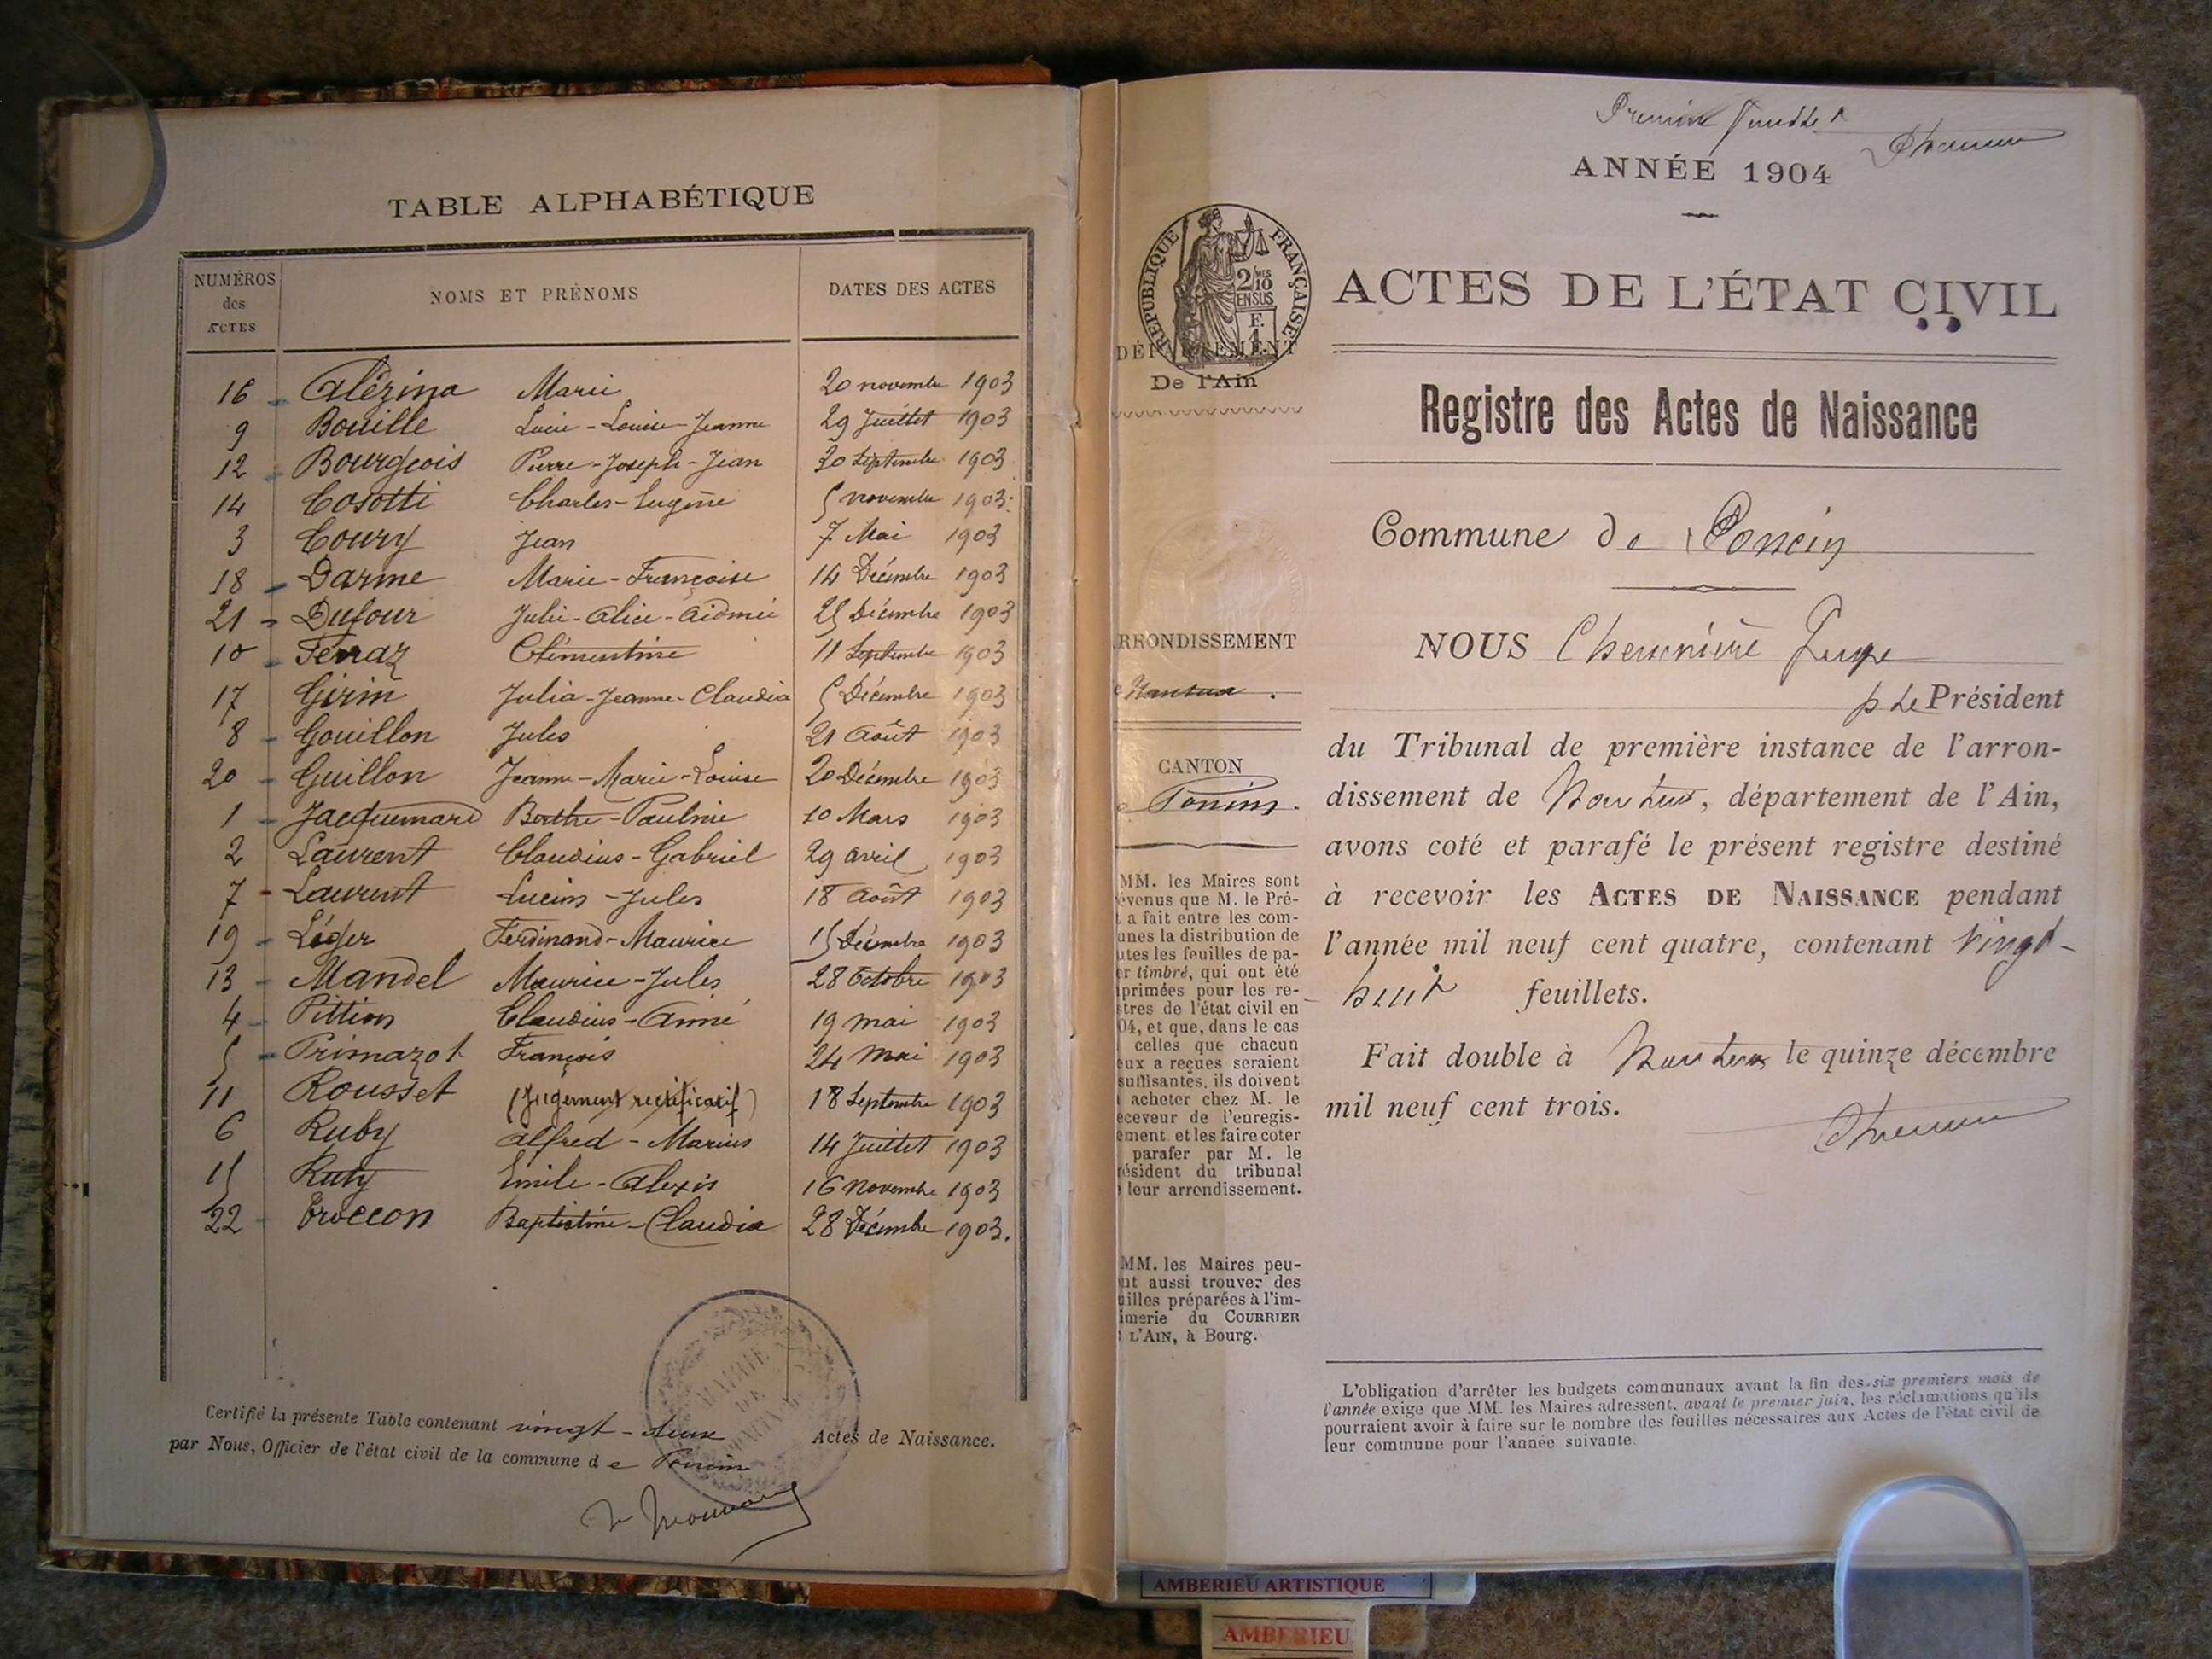 TABLE ALPHABÉTIQUE
NUMÉROS des ACTES NOMS ET PRÉNOMS DATES DES ACTES
16 Alézina Marie 20 novembre 1903
9 Bouille Lucie-Louise-Jeanne 29 Juillet 1903
12 Bourgeois Pierre-Joseph-Jean 30 Septembre 1903
14 Cosotti Charles-Eugène 5 novembre 1903
3 Coury Jean 7 Mai 1903
18 Darme Marie-Françoise 14 Décembre 1903
21 Dufour Julie-Alice-Aidmée 25 Décembre 1903
10 Ferraz Clémentine 11 Septembre 1903
17 Girin Julia-Jeanne-Claudia 5 Décembre 1903
8 Gouillon Jules 21 Août 1903
20 Guillon Jeanne-Marie-Louise 20 Décembre 1903
1 Jacquemard Berthe-Pauline 10 Mars 1903
2 Laurent Claudius-Gabriel 29 avril 1903
7 Laurent Lucien-Jules 18 Août 1903
19 Léger Ferdinand-Maurice 15 Décembre 1903
13 Mandel Maurice-Jules 28 Octobre 1903
4 Pittion Claudius-Aimé 19 mai 1903
5 Primazot François 24 Mai 1903
11 Rousset (Jugement rectificatif) 18 Septembre 1903
6 Ruby Alfred-Marius 14 Juillet 1903
15 Ruty Emile-Alexis 16 Novembre 1903
22 Troccon Baptistine-Claudia 28 Décembre 1903.
Certifié la présente Table contenant vingt-deux Actes de Naissance.
par Nous, Officier de l'état civil de la commune de Poncin
MAIRIE DE
Premier feuillet
ANNÉE 1904
RÉPUBLIQUE FRANÇAISE
2/10MES
EN SUS
F.
1.
DÉPARTEMENT
De l'Ain
ACTES DE L'ÉTAT CIVIL
Registre des Actes de Naissance
Commune de Poncin
RRONDISSEMENT
Nantua.
CANTON
e Poncin.
MM. les Maires sont
évenus que M. le Pré-
t a fait entre les com-
unes la distribution de
utes les feuilles de pa-
er timbré, qui ont été
primées pour les re-
stres de l'état civil en
04, et que, dans le cas
celles que chacun
eux a reçues seraient
suffisantes, ils doivent
acheter chez M. le
eceveur de l'enregis-
ement et les faire coter
parafer par M. le
résident du tribunal
leur arrondissement.
MM. les Maires peu-
nt aussi trouver des
uilles préparées à l'im-
imerie du COURRIER
L'AIN, à Bourg.
NOUS Juge
p Le Président
du Tribunal de première instance de l'arron-
dissement de Nantua, département de l'Ain,
avons coté et parafé le présent registre destiné
à recevoir les ACTES DE NAISSANCE pendant
l'année mil neuf cent quatre, contenant vingt-
huit feuillets.
Fait double à Nantua le quinze décembre
mil neuf cent trois.
L'obligation d'arrêter les budgets communaux avant la fin des six premiers mois de
l'année exige que MM. les Maires adressent, avant le premier juin, les réclamations qu'ils
pourraient avoir à faire sur le nombre des feuilles nécessaires aux Actes de l'état civil de
leur commune pour l'année suivante.
AMBERIEU ARTISTIQUE
AMBERIEU